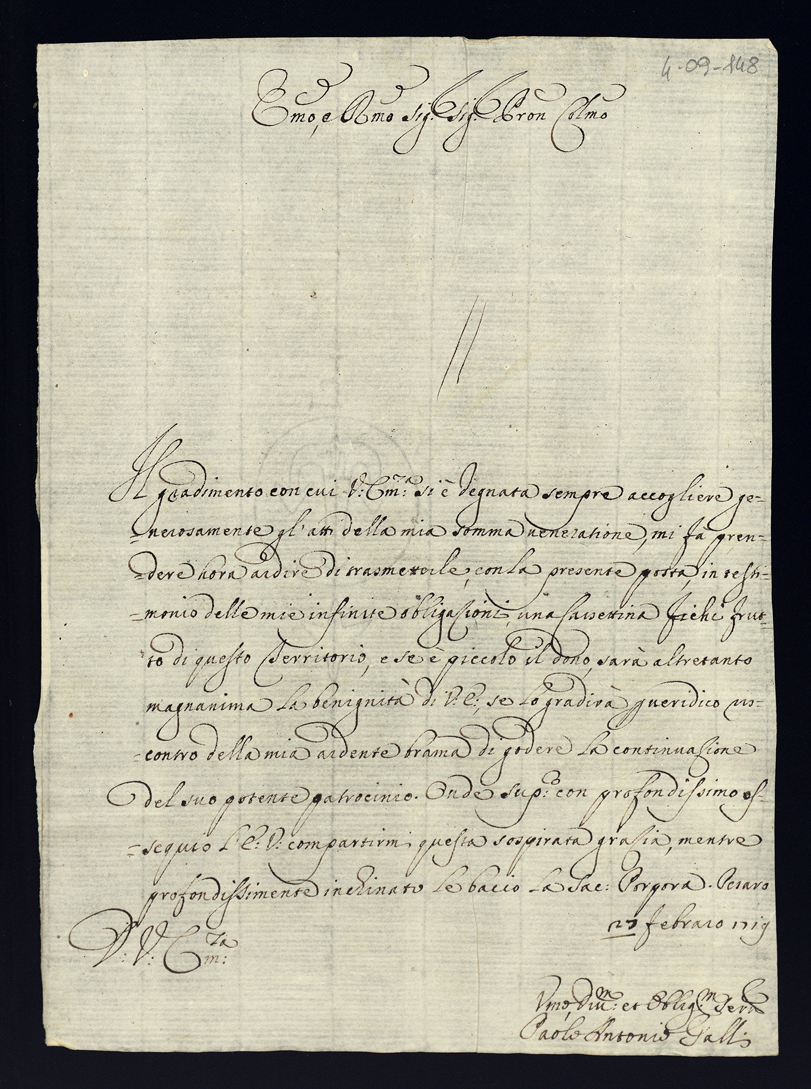 4-09-148
Emo, e Rmo Sig:r Sig:r Pron Colmo
Il gradimento con cui V: Em:za si è degnata sempre accogliere ge=
=nerosamente gl'atti della mia somma veneratione, mi fà pren=
=dere hora ardire di trasmetterle, con la presente posta, in testi=
=monio delle mie infinite obligazioni, una Cassettina fichi frut=
to di questo Territorio, e se è piccolo il dono, sarà altretanto
magnanima la benignità di V: E: se lo gradirà p veridico ris=
=contro della mia ardente brama di godere la continuazione
del suo potente patrocinio. Onde sup:co con profondissimo os=
=sequio l'E: V: compartirmi questa sospirata grazia, mentre
profondissimente inchinato le bacio la Sac: Porpora. Pesaro
27 febraro 1719
D: V: Em:za
Vmo, Divm: et Oblig:m Serre
Paolo Antonio Galli